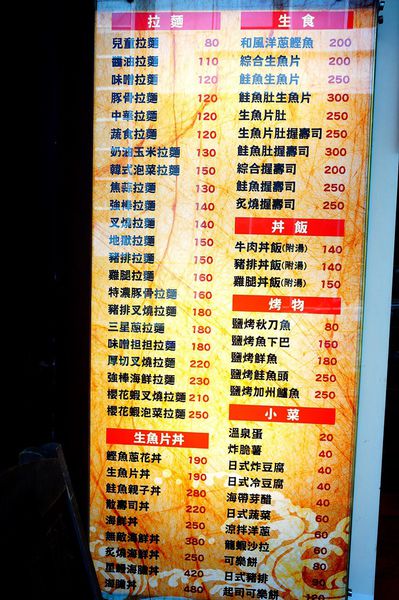 拉麵
兒童拉麵 80
醬油拉麵 110
味噌拉麵 120
豚骨拉麵 120
中華拉麵 120
蔬食拉麵 120
奶油玉米拉麵 130
韓式泡菜拉麵 150
焦蒜拉麵 130
強棒拉麵 140
叉燒拉麵 140
地獄拉麵 150
豬排拉麵 150
雞腿拉麵 160
特濃豚骨拉麵 160
豬排叉燒拉麵 180
三星蔥拉麵 180
味噌担担拉麵 180
厚切叉燒拉麵 220
強棒海鮮拉麵 230
櫻花蝦叉燒拉麵 210
櫻花蝦泡菜拉麵 250
生魚片丼
鰹魚蔥花丼 190
生魚片丼 190
鮭魚親子丼 280
散壽司丼 220
海鮮丼 250
無敵海鮮丼 380
炙燒海鮮丼 250
星鰻海膽丼 480
海膽丼 480
生食
和風洋蔥鰹魚 200
綜合生魚片 200
鮭魚生魚片 250
鮭魚肚生魚片 300
生魚片肚 250
生魚片肚握壽司 250
鮭魚肚握壽司 300
綜合握壽司 200
鮭魚握壽司 250
炙燒握壽司 250
丼飯
牛肉丼飯(附湯) 140
豬排丼飯(附湯) 140
雞腿丼飯(附湯) 150
烤物
鹽烤秋刀魚 80
鹽烤魚下巴 150
鹽烤鮮魚 180
鹽烤鮭魚頭 250
鹽烤加州鱸魚 250
小菜
溫泉蛋 20
炸脆薯 40
日式炸豆腐 40
日式冷豆腐 40
海帶芽醋 40
日式蔬菜 60
涼拌洋蔥 60
龍蝦沙拉 60
可樂餅 60
日式豬排 90
起司可樂餅 120